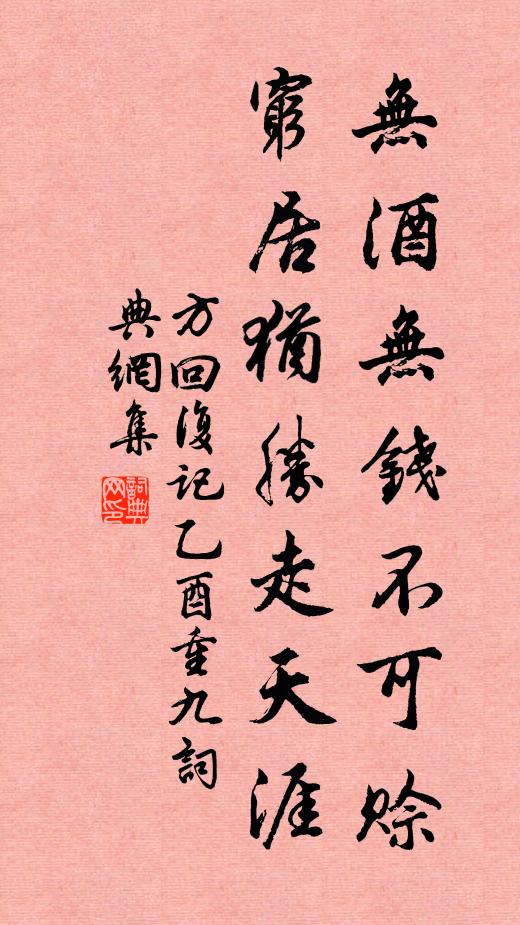 無酒無錢不可賒
窮居猶勝走天涯
方回復記乙酉重九詞
典網集
詞典網印